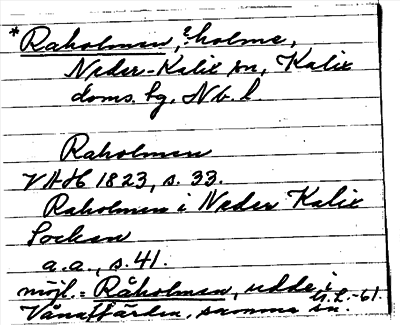 *Raholmen, ? holme,
Neder-Kalix sn, Kalix
doms. lg. Nb. l.
Raholmen
VAH 1823, s. 33.
Raholmen i Neder Kalix
Socken
a.a., s. 41.
möjl. = Råholmen, udde i
Vånafjärden, samma sn.
G.L. -61.